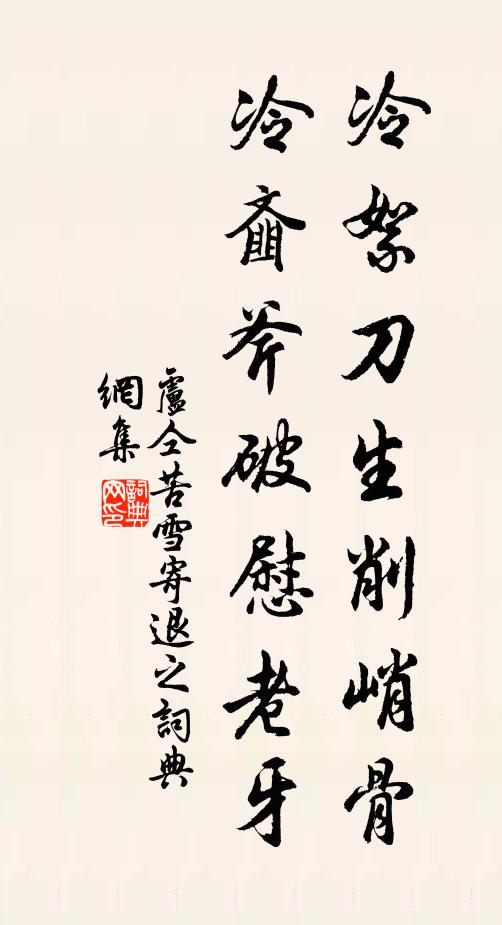 冷絮刀生削峭骨
冷齑斧破慰老牙
盧仝苦雪寄退之詞典
網集
詞典
网印